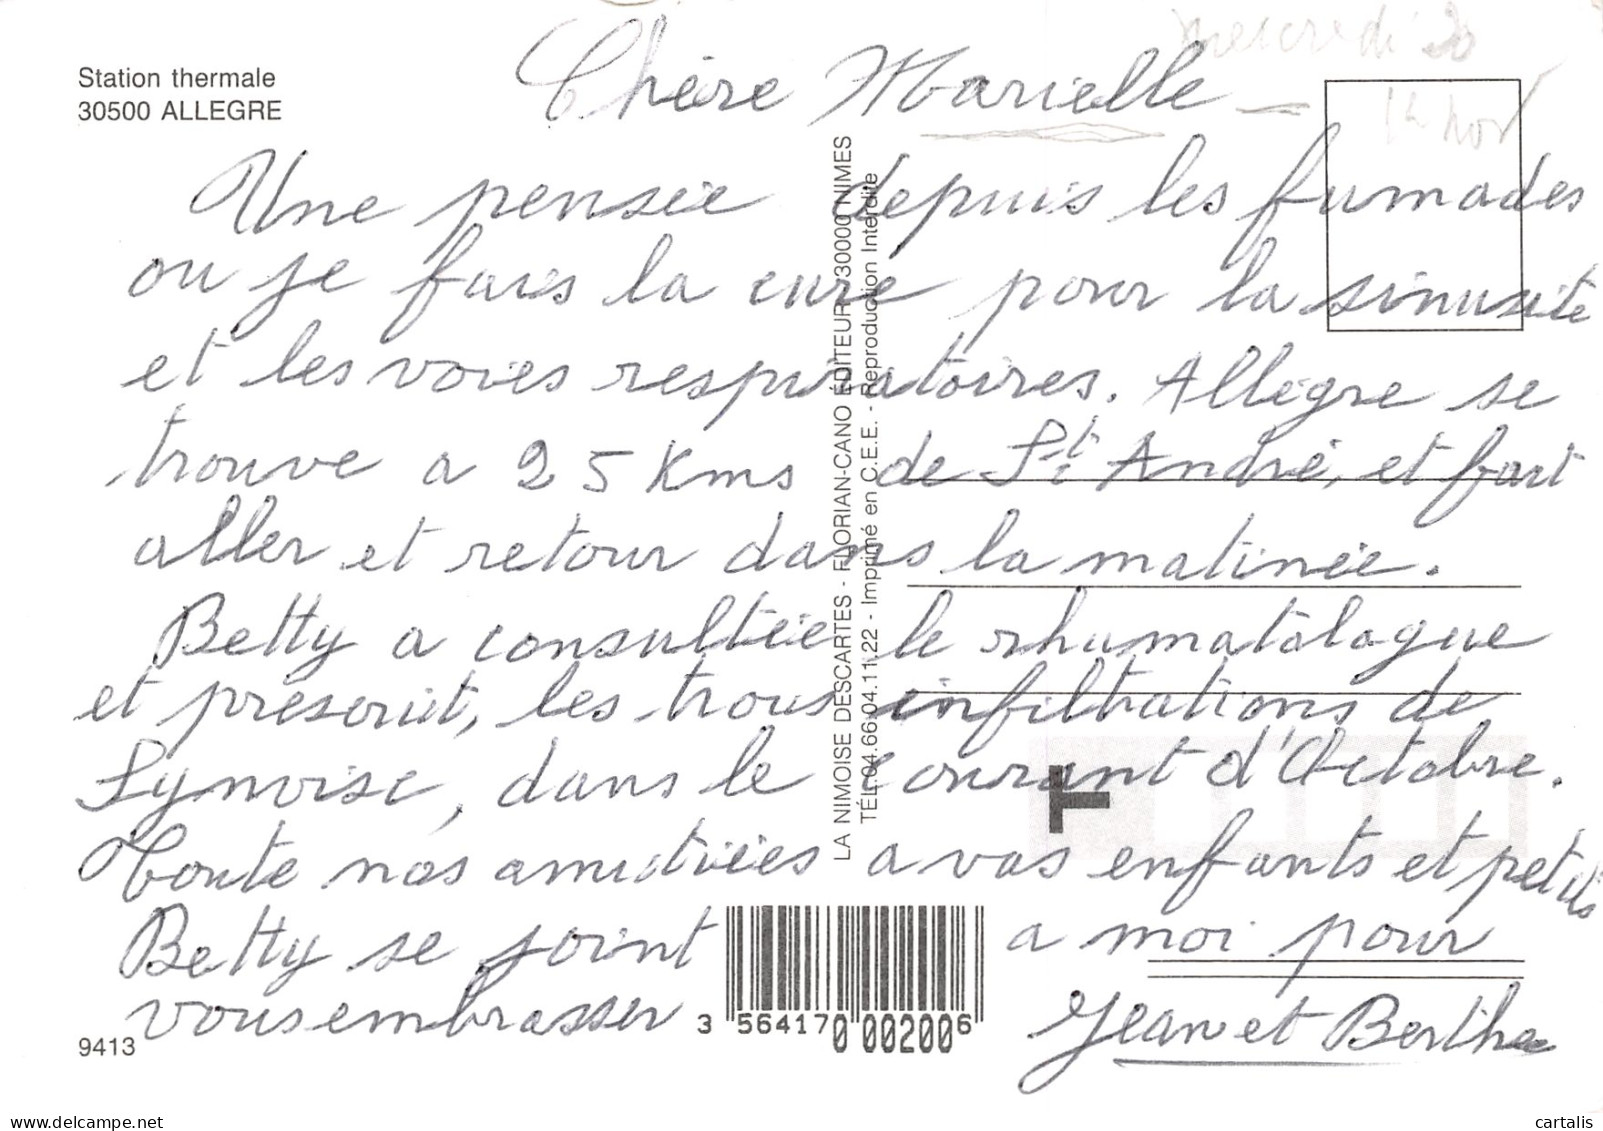 mercredi 20
Station thermale
30500 ALLEGRE
Chère Marielle
Une pensée depuis les fumades
ou je fais la cure pour la sinusite
et les voies respiratoires. Allègre se
trouve a 25 Kms de St André, et fait
aller et retour dans la matinée.
Betty a consultée le rhumatologue
et prescrit, les trois infiltrations de
Synvisc, dans le courant d'Octobre.
Toute nos amitiées a vos enfants et petits
Betty se joint a moi pour
vous embrasser Jean et Berthe
LA NIMOISE DESCARTES - FLORIAN-CANO ÉDITEUR 30000 NIMES
TÉL.04.66.04.11.22 - Imprimé en C.E.E. - Reproduction Interdite
T
3 564170 002006
9413
cartalis
www.delcampe.net